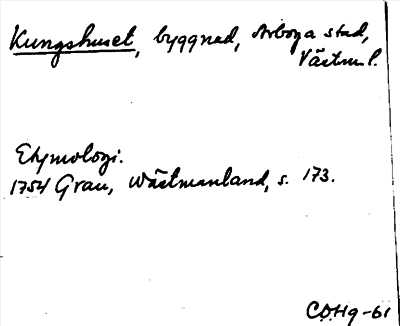 Kungshuset, byggnad, Arboga stad,
Västm.l.
Etymologi.
1754 Grau, Wästmanland, s. 173.
CDHg-61